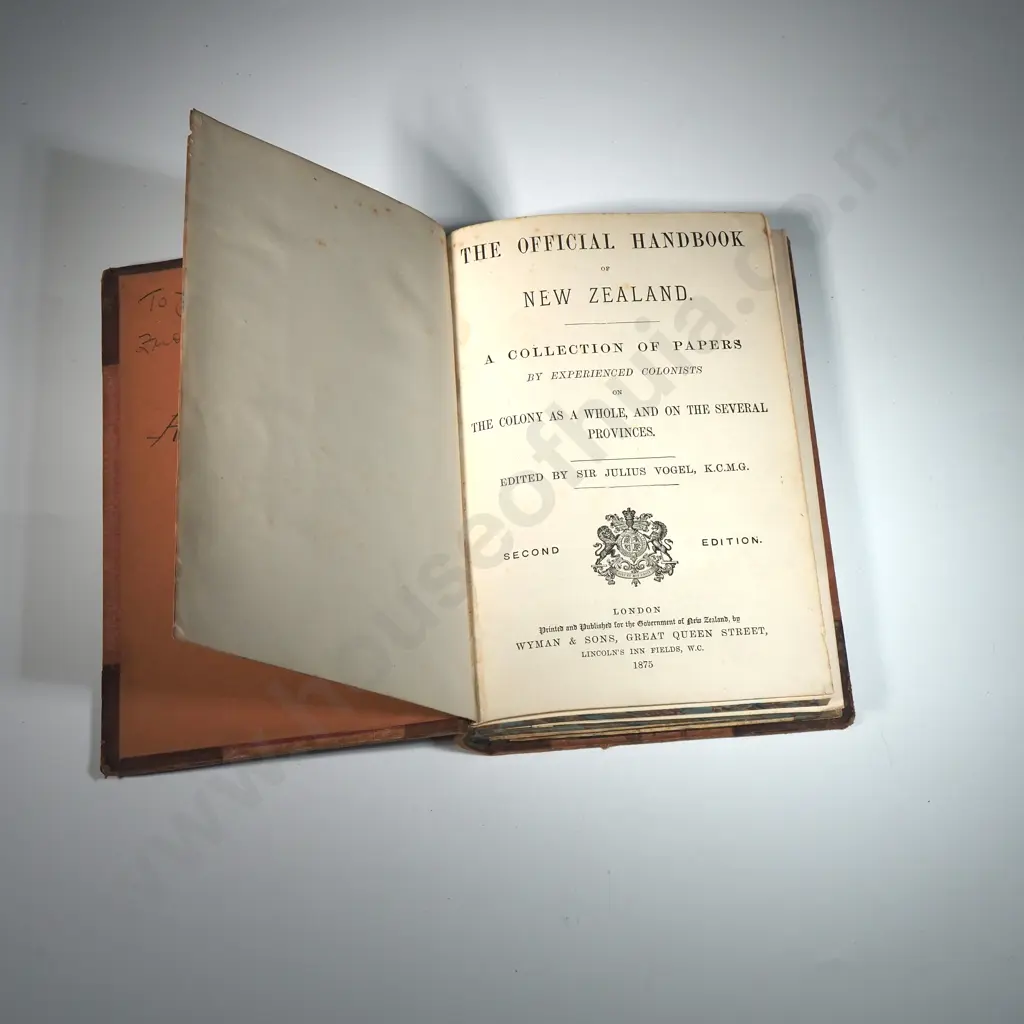 To
THE OFFICIAL HANDBOOK
OF
NEW ZEALAND.
A COLLECTION OF PAPERS
BY EXPERIENCED COLONISTS
ON
THE COLONY AS A WHOLE, AND ON THE SEVERAL
PROVINCES.
EDITED BY SIR JULIUS VOGEL, K.C.M.G.
SECOND EDITION.
LONDON
Printed and Published for the Government of New Zealand, by
WYMAN & SONS, GREAT QUEEN STREET,
LINCOLN'S INN FIELDS, W.C.
1875
www.houseofhuia.co.nz